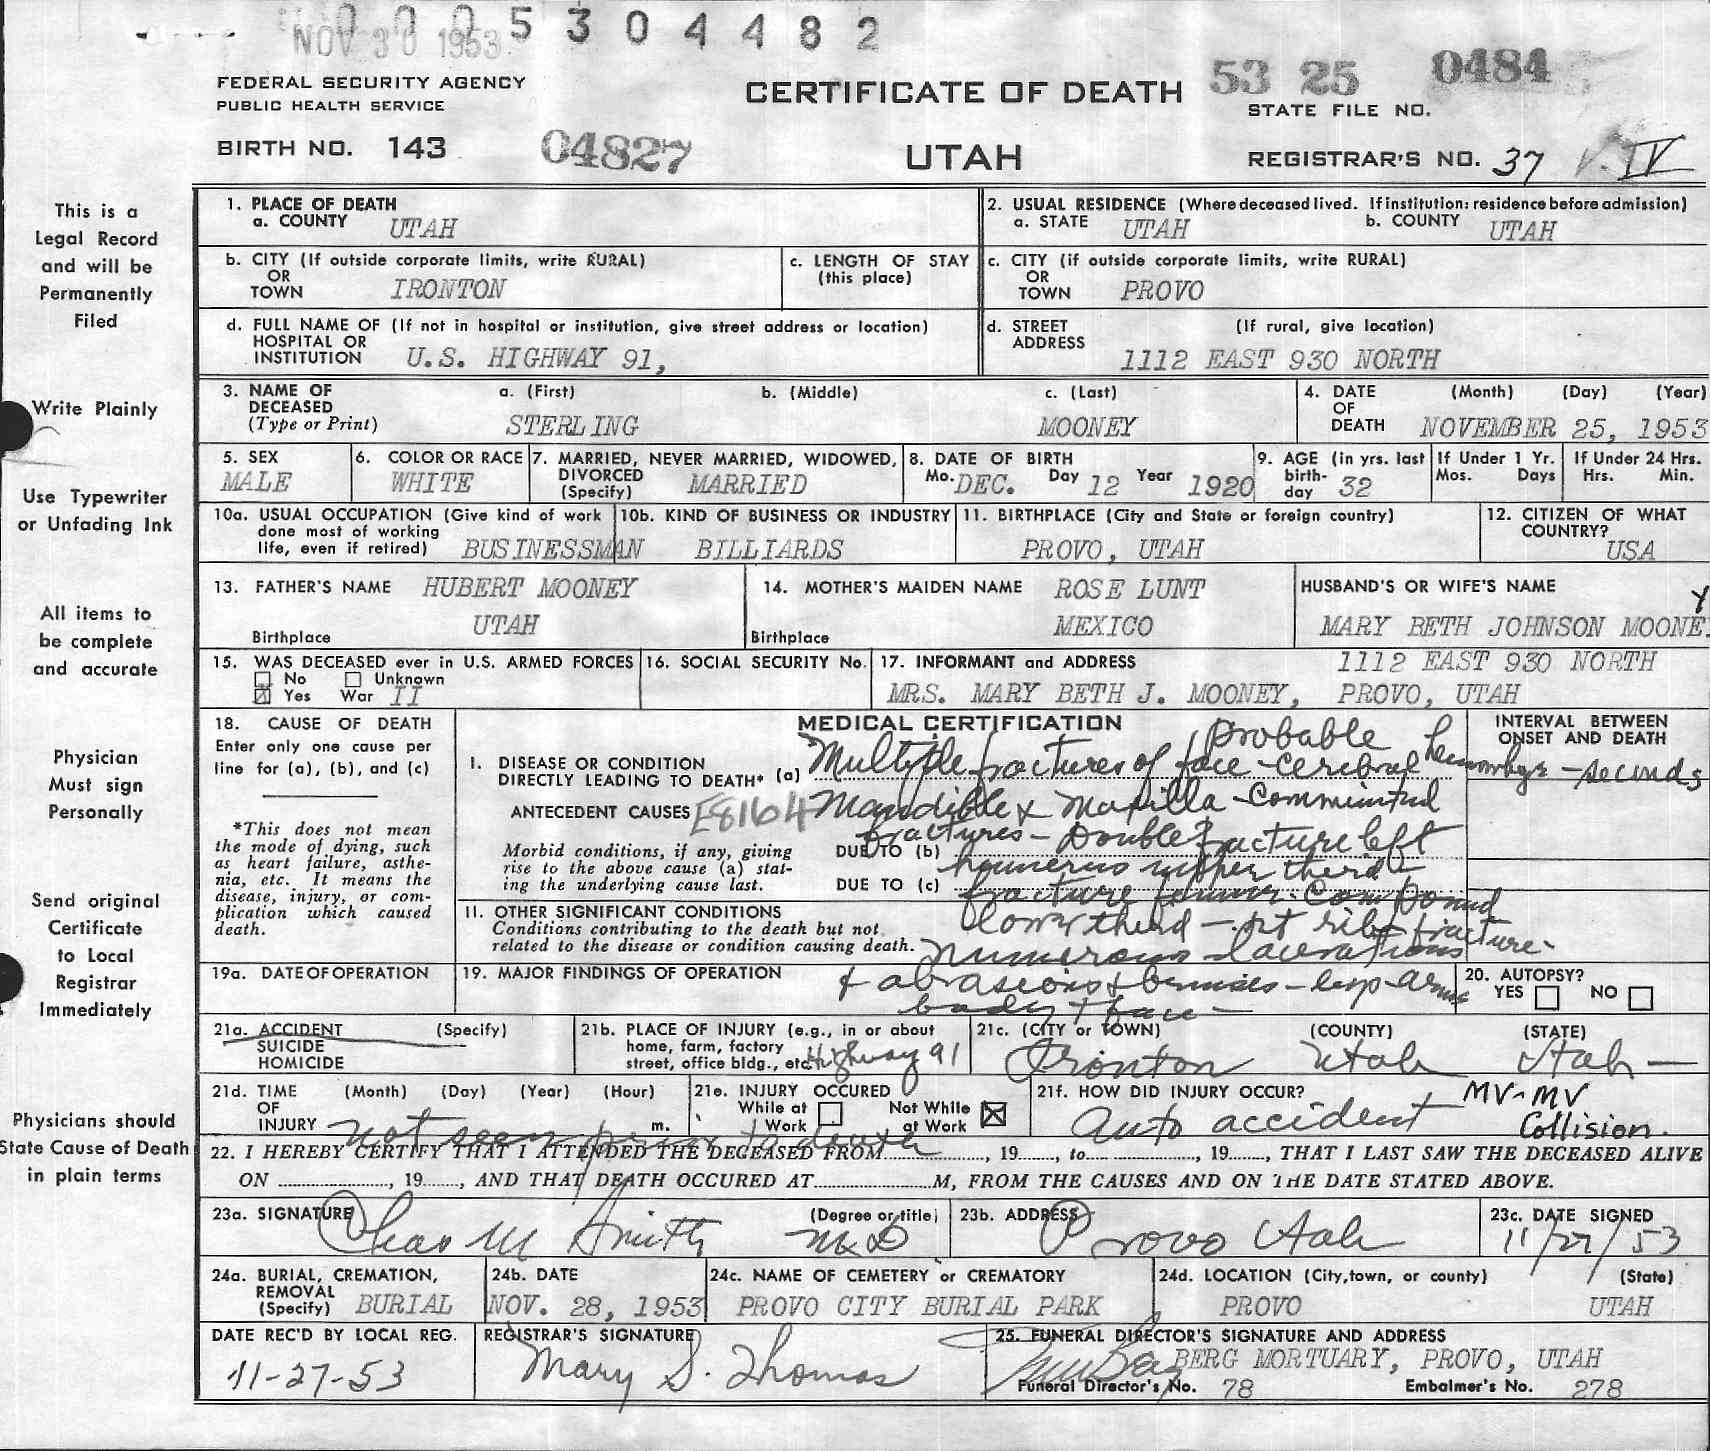 0005304482
NOV 30 1953
FEDERAL SECURITY AGENCY
PUBLIC HEALTH SERVICE
BIRTH NO. 143 04827
CERTIFICATE OF DEATH
UTAH
53 25 0484
STATE FILE NO.
REGISTRAR'S NO. 37 V. IV
This is a
Legal Record
and will be
Permanently
Filed
Write Plainly
Use Typewriter
or Unfading Ink
All items to
be complete
and accurate
Physician
Must sign
Personally
Send original
Certificate
to Local
Registrar
Immediately
Physicians should
State Cause of Death
in plain terms
1. PLACE OF DEATH
a. COUNTY UTAH
2. USUAL RESIDENCE (Where deceased lived. If institution: residence before admission)
a. STATE UTAH b. COUNTY UTAH
b. CITY (If outside corporate limits, write RURAL)
OR
TOWN IRONTON
c. LENGTH OF STAY
(this place)
c. CITY (if outside corporate limits, write RURAL)
OR
TOWN PROVO
d. FULL NAME OF (If not in hospital or institution, give street address or location)
HOSPITAL OR
INSTITUTION U.S. HIGHWAY 91,
d. STREET (If rural, give location)
ADDRESS
1112 EAST 930 NORTH
3. NAME OF a. (First) b. (Middle) c. (Last)
DECEASED
(Type or Print) STERLING MOONEY
4. DATE (Month) (Day) (Year)
OF
DEATH NOVEMBER 25, 1953
5. SEX
MALE
6. COLOR OR RACE
WHITE
7. MARRIED, NEVER MARRIED, WIDOWED,
DIVORCED
(Specify) MARRIED
8. DATE OF BIRTH
Mo. DEC. Day 12 Year 1920
9. AGE (in yrs. last
birth-
day 32
If Under 1 Yr.
Mos. Days
If Under 24 Hrs.
Hrs. Min.
10a. USUAL OCCUPATION (Give kind of work
done most of working
life, even if retired) BUSINESSMAN
10b. KIND OF BUSINESS OR INDUSTRY
BILLIARDS
11. BIRTHPLACE (City and State or foreign country)
PROVO, UTAH
12. CITIZEN OF WHAT
COUNTRY?
USA
13. FATHER'S NAME HUBERT MOONEY
UTAH
Birthplace
14. MOTHER'S MAIDEN NAME ROSE LUNT
MEXICO
Birthplace
HUSBAND'S OR WIFE'S NAME
MARY BETH JOHNSON MOONEY
15. WAS DECEASED ever in U.S. ARMED FORCES
No Unknown
Yes War II
16. SOCIAL SECURITY No.
17. INFORMANT and ADDRESS 1112 EAST 930 NORTH
MRS. MARY BETH J. MOONEY, PROVO, UTAH
18. CAUSE OF DEATH
Enter only one cause per
line for (a), (b), and (c)
*This does not mean
the mode of dying, such
as heart failure, asthe-
nia, etc. It means the
disease, injury, or com-
plication which caused
death.
MEDICAL CERTIFICATION
I. DISEASE OR CONDITION
DIRECTLY LEADING TO DEATH* (a) Multiple fractures of face - Probable cerebral hemorrhage - seconds
INTERVAL BETWEEN
ONSET AND DEATH
ANTECEDENT CAUSES E8164 Mandible & Maxilla - Comminuted
fractures - Double Fracture left
Morbid conditions, if any, giving
rise to the above cause (a) stat-
ing the underlying cause last.
DUE TO (b) humerus upper third
DUE TO (c) fracture femur. Compound
II. OTHER SIGNIFICANT CONDITIONS
Conditions contributing to the death but not
related to the disease or condition causing death.
lower third - rt rib fracture -
numerous lacerations
19a. DATE OF OPERATION
19. MAJOR FINDINGS OF OPERATION
& abrasions & bruises - legs - arms
body & face -
20. AUTOPSY?
YES NO
21a. ACCIDENT (Specify)
SUICIDE
HOMICIDE
21b. PLACE OF INJURY (e.g., in or about
home, farm, factory
street, office bldg., etc. Highway 91
21c. (CITY or TOWN) (COUNTY) (STATE)
Ironton Utah Utah -
21d. TIME (Month) (Day) (Year) (Hour)
OF
INJURY m.
not seen prior to death
21e. INJURY OCCURED
While at Work Not While at Work
21f. HOW DID INJURY OCCUR?
Auto accident MV-MV
Collision.
22. I HEREBY CERTIFY THAT I ATTENDED THE DECEASED FROM , 19 , to , 19 , THAT I LAST SAW THE DECEASED ALIVE
ON , 19 , AND THAT DEATH OCCURED AT M, FROM THE CAUSES AND ON THE DATE STATED ABOVE.
23a. SIGNATURE (Degree or title)
Chas M Smith MD
23b. ADDRESS
Provo Utah
23c. DATE SIGNED
11/27/53
24a. BURIAL, CREMATION,
REMOVAL
(Specify) BURIAL
24b. DATE
NOV. 28, 1953
24c. NAME OF CEMETERY or CREMATORY
PROVO CITY BURIAL PARK
24d. LOCATION (City, town, or county) (State)
PROVO UTAH
DATE REC'D BY LOCAL REG.
11-27-53
REGISTRAR'S SIGNATURE
Mary S. Thomas
25. FUNERAL DIRECTOR'S SIGNATURE AND ADDRESS
BERG MORTUARY, PROVO, UTAH
Funeral Director's No. 78 Embalmer's No. 278